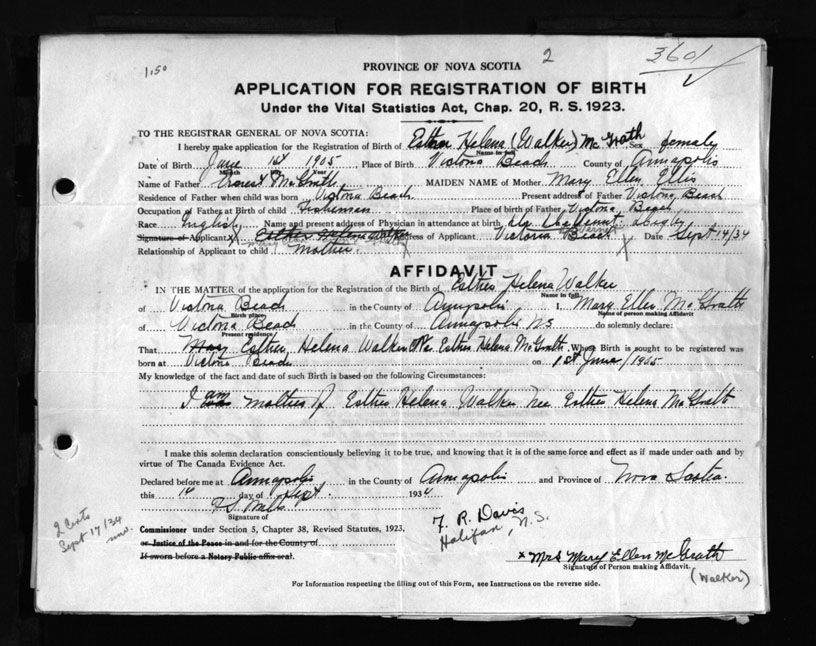 1.50
2
3601
PROVINCE OF NOVA SCOTIA
APPLICATION FOR REGISTRATION OF BIRTH
Under the Vital Statistics Act, Chap. 20, R. S. 1923.
TO THE REGISTRAR GENERAL OF NOVA SCOTIA:
I hereby make application for the Registration of Birth of Esther Helena (Walker) McGrath Sex female
Name in full
Date of Birth June 1st 1905 Place of Birth Victoria Beach County of Annapolis
Month Day Year
Name of Father Ernest McGrath MAIDEN NAME of Mother Mary Ellen Ellis
Residence of Father when child was born Victoria Beach Present address of Father Victoria Beach
Occupation of Father at Birth of child Fisherman Place of birth of Father Victoria Beach
Race English Name and present address of Physician in attendance at birth Digby
Signature of Applicant X Esther Helena Walker Address of Applicant Victoria Beach Date Sept 14/34
Relationship of Applicant to child mother
AFFIDAVIT
IN THE MATTER of the application for the Registration of the Birth of Esther Helena Walker
Name in full.
of Victoria Beach in the County of Annapolis I, Mary Ellen McGrath
Birth place Name of person making Affidavit
of Victoria Beach in the County of Annapolis NS do solemnly declare:
Present residence
That Mary Esther Helena Walker Nee Esther Helena McGrath Whose Birth is sought to be registered was
born at Victoria Beach on 1st June/1905
My knowledge of the fact and date of such Birth is based on the following Circumstances:
I am mother of Esther Helena Walker Nee Esther Helena McGrath
I make this solemn declaration conscientiously believing it to be true, and knowing that it is of the same force and effect as if made under oath and by
virtue of The Canada Evidence Act.
Declared before me at Annapolis in the County of Annapolis and Province of Nova Scotia.
this 14 day of Sept. 1934
Signature of
F. R. Davis
Halifax, N.S.
Commissioner under Section 5, Chapter 38, Revised Statutes, 1923,
or Justice of the Peace in and for the County of
If sworn before a Notary Public affix seal.
2 Certs
Sept 17/34
x Mrs Mary Ellen McGrath
Signature of Person making Affidavit.
(Walker)
For Information respecting the filling out of this Form, see Instructions on the reverse side.